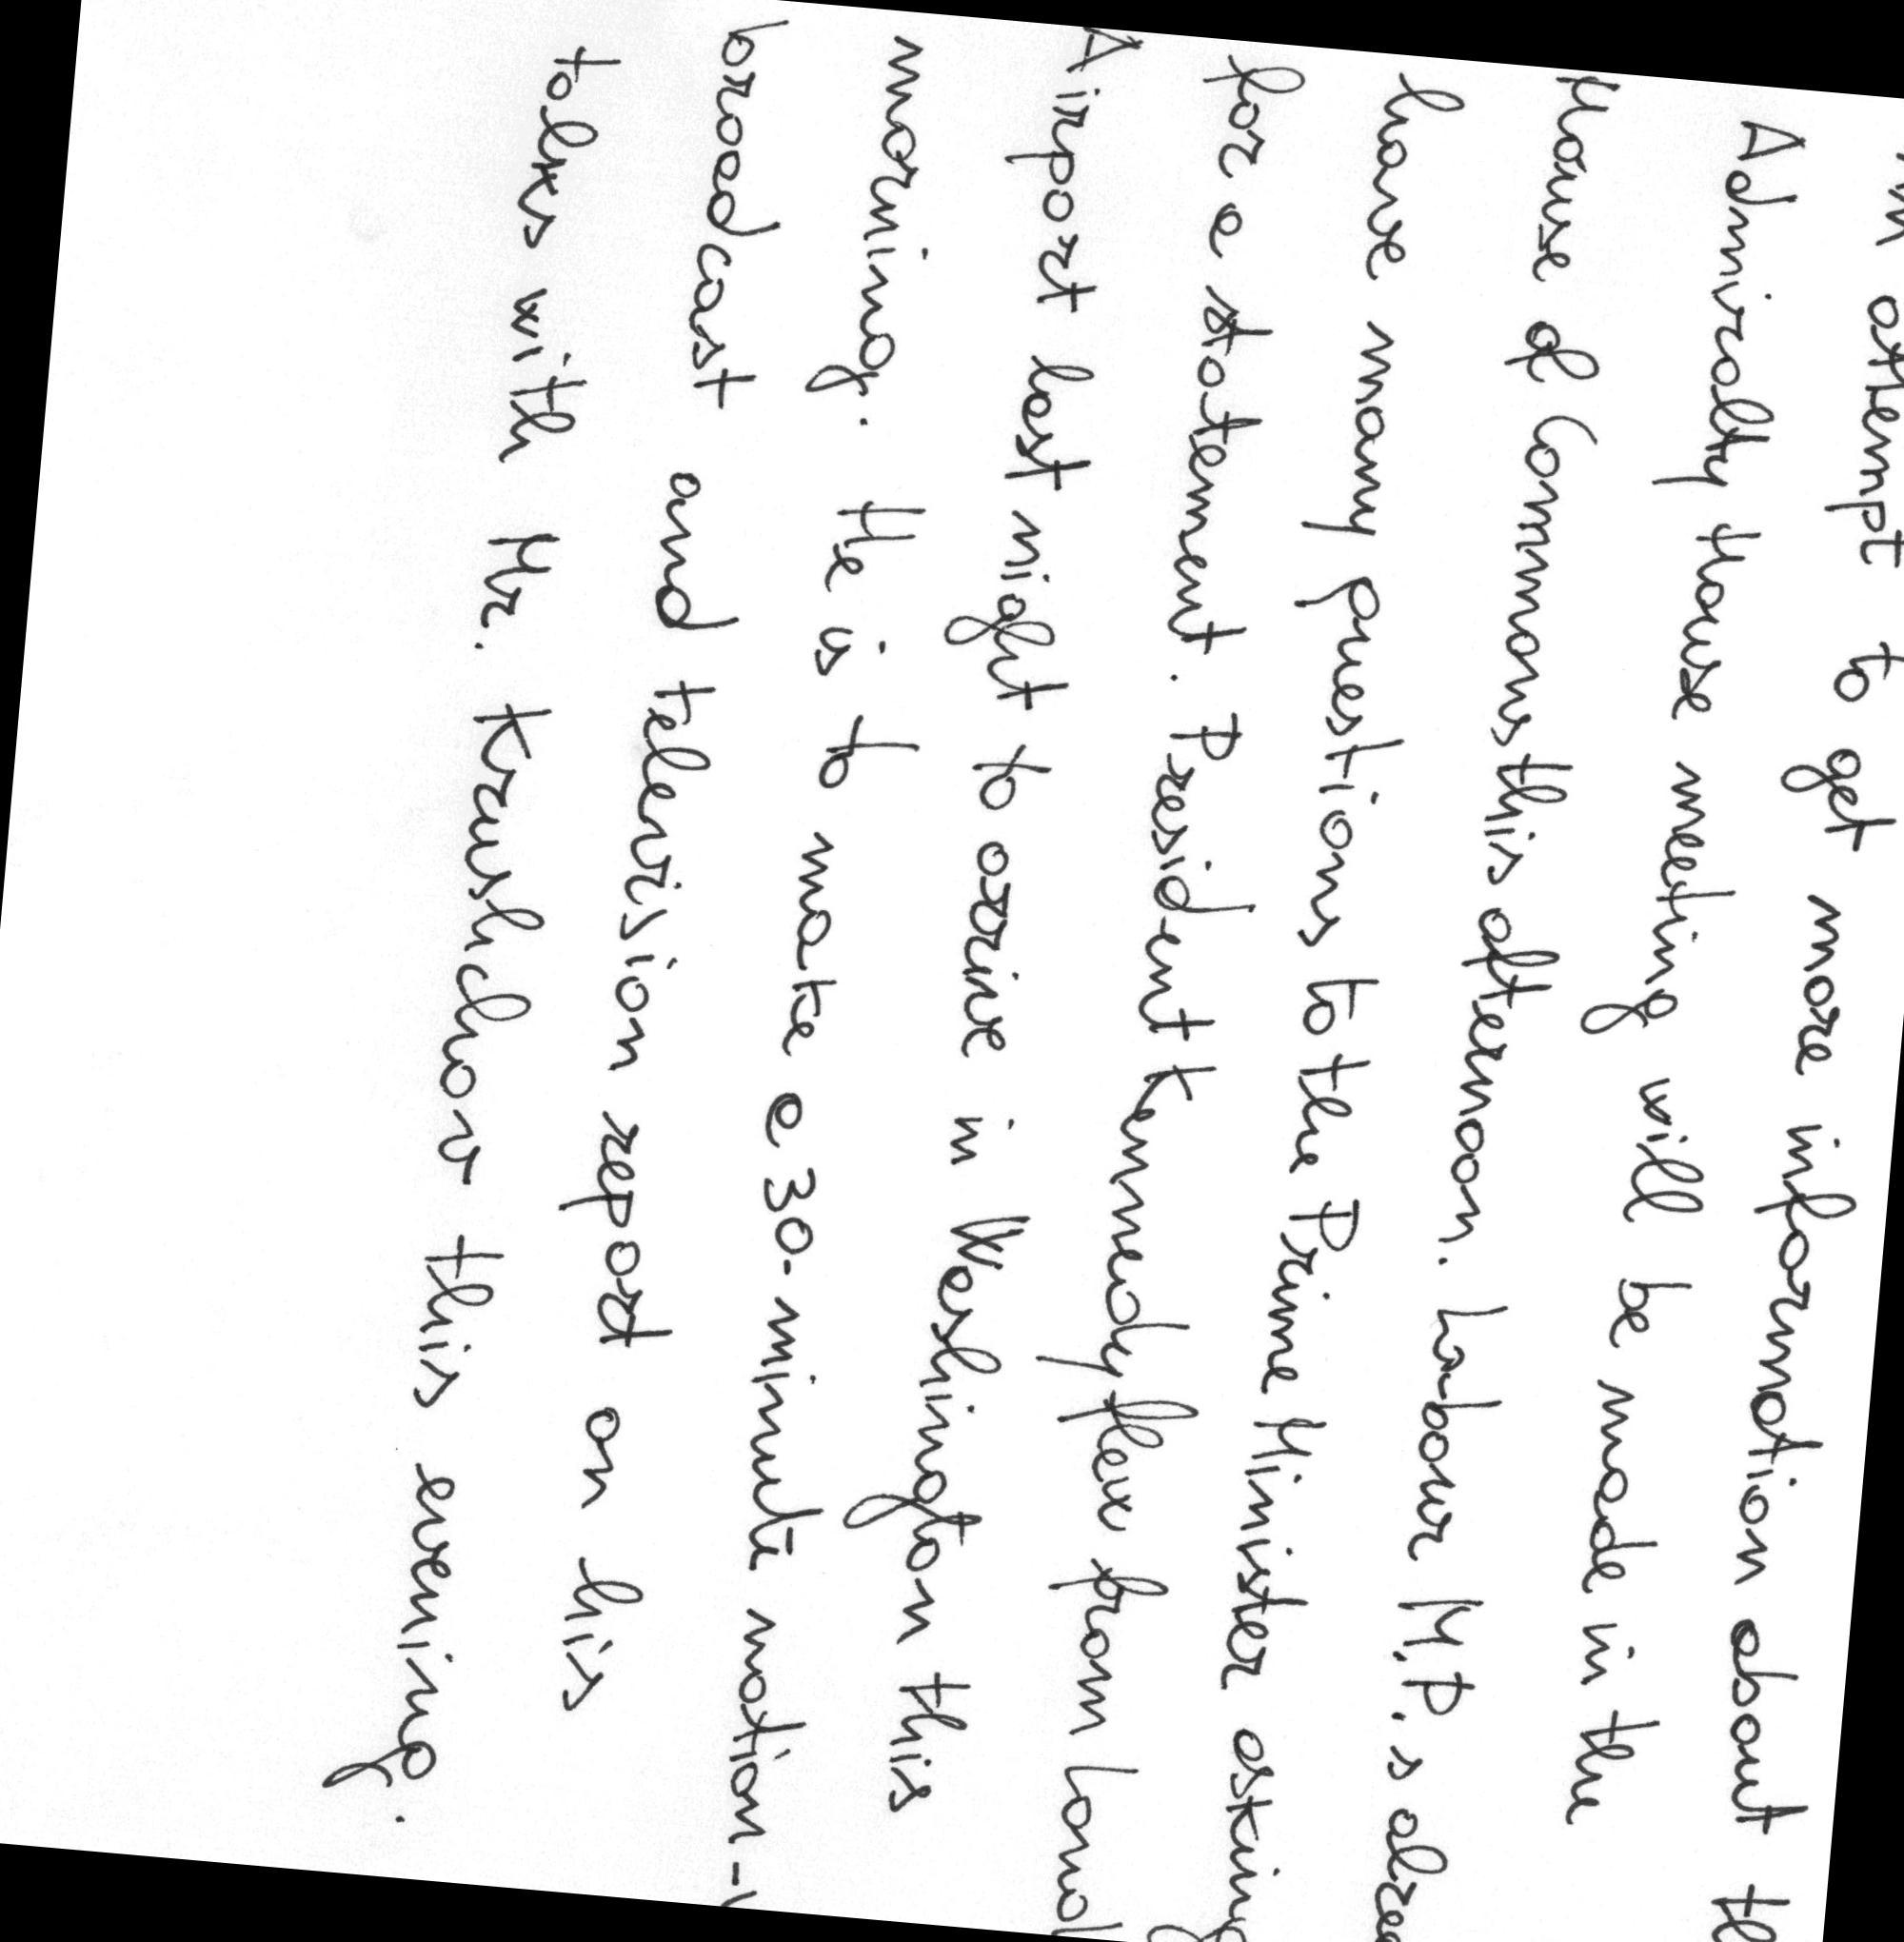 An attempt to get more information about the
Admiralty House meeting will be made in the
House of Commons this afternoon. Labour M.P.s alrea
have many questions to the Prime Minister asking
for a statement. President Kennedy flew from Lond
Airport last night to arrive in Washington this
morning. He is to make a 30-minute nation-w
broadcast and television report on his
talks with Mr. Krushchov this evening.